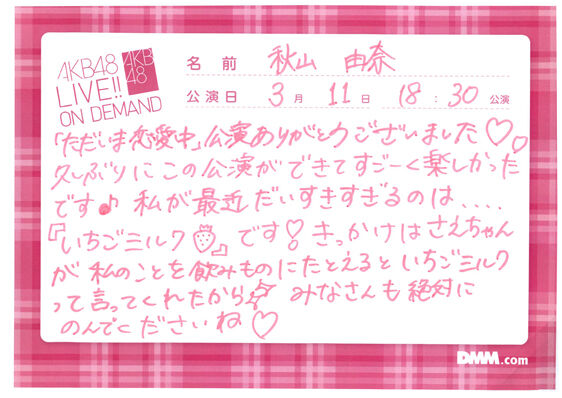 AKB48
LIVE!!
ON DEMAND
AKB
48
名前 秋山 由奈
公演日 3月 11日 18:30 公演
「ただいま恋愛中」公演ありがとうございました♡。
久しぶりにこの公演ができてすごーく楽しかった
です♪ 私が最近だいすきすぎるのは、、、、
『いちごミルク🍓』です! きっかけはさえちゃん
が 私のことを飲みものにたとえるといちごミルク
って言ってくれたから☆ みなさんも絶対に
のんでくださいね♡
DMM.com